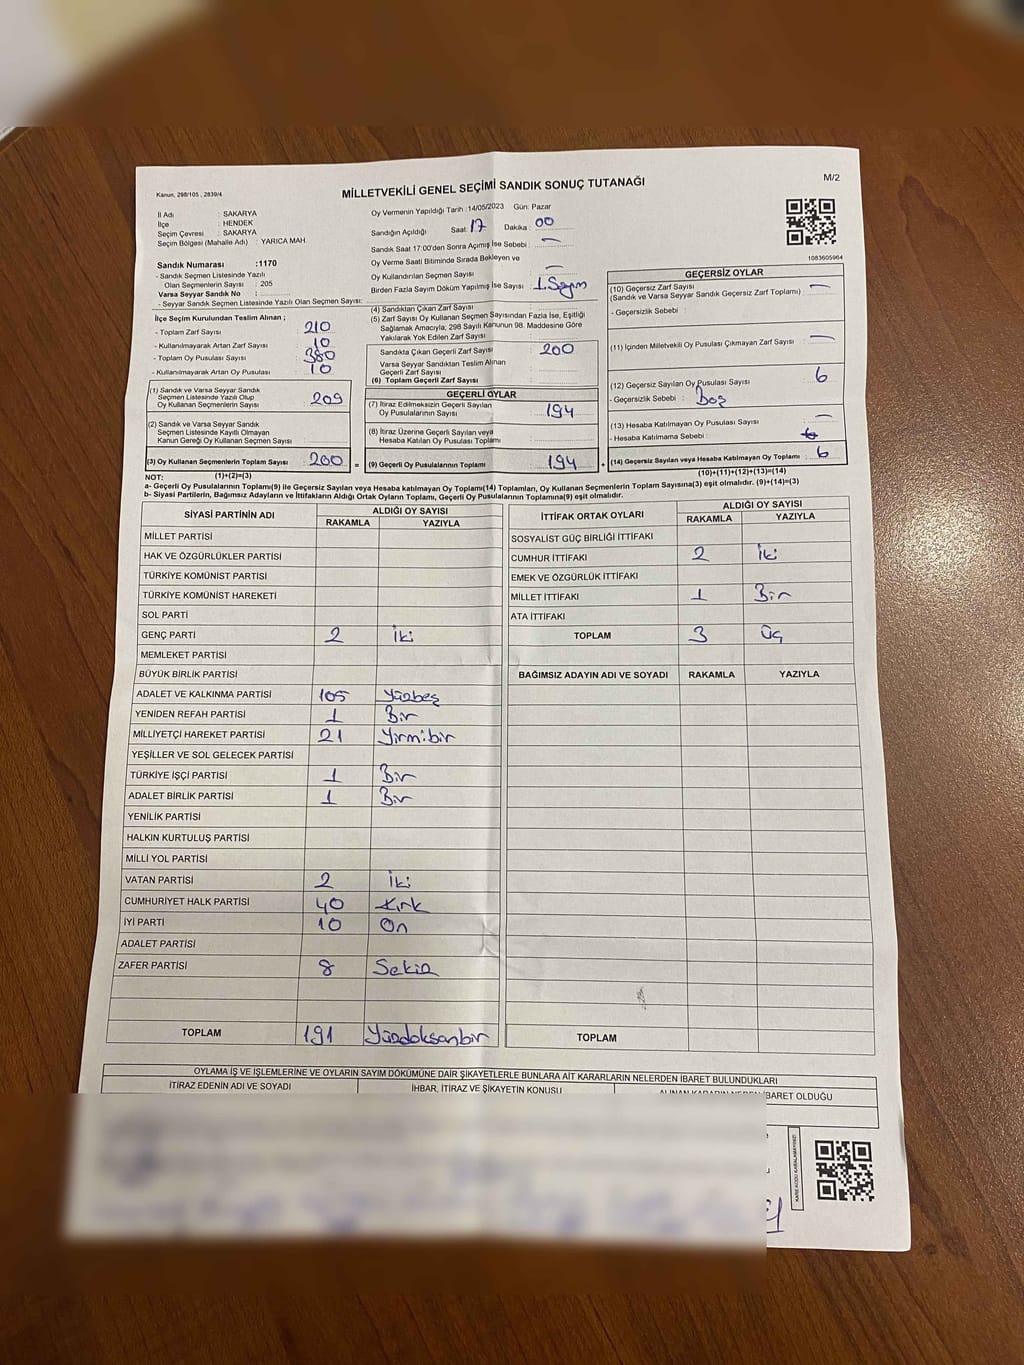 Kanun, 298/105 , 2839/4
MİLLETVEKİLİ GENEL SEÇİMİ SANDIK SONUÇ TUTANAĞI
M/2
İl Adı : SAKARYA
İlçe : HENDEK
Seçim Çevresi : SAKARYA
Seçim Bölgesi (Mahalle Adı) : YARICA MAH.
Sandık Numarası :1170
- Sandık Seçmen Listesinde Yazılı
Olan Seçmenlerin Sayısı : 205
Varsa Seyyar Sandık No :
- Seyyar Sandık Seçmen Listesinde Yazılı Olan Seçmen Sayısı:
Oy Vermenin Yapıldığı Tarih :14/05/2023 Gün: Pazar
Sandığın Açıldığı Saat: 17 Dakika : 00
Sandık Saat 17:00'den Sonra Açımış İse Sebebi : —
Oy Verme Saati Bitiminde Sırada Bekleyen ve
Oy Kullandırılan Seçmen Sayısı —
Birden Fazla Sayım Döküm Yapılmış İse Sayısı : 1. Sayım
1083605964
İlçe Seçim Kurulundan Teslim Alınan ;
- Toplam Zarf Sayısı 210
- Kullanılmayarak Artan Zarf Sayısı 10
- Toplam Oy Pusulası Sayısı 380
- Kullanılmayarak Artan Oy Pusulası 10
(1) Sandık ve Varsa Seyyar Sandık
Seçmen Listesinde Yazılı Olup
Oy Kullanan Seçmenlerin Sayısı 209
(2) Sandık ve Varsa Seyyar Sandık
Seçmen Listesinde Kayıtlı Olmayan
Kanun Gereği Oy Kullanan Seçmen Sayısı
(3) Oy Kullanan Seçmenlerin Toplam Sayısı 200
(1)+(2)=(3)
(4) Sandıktan Çıkan Zarf Sayısı
(5) Zarf Sayısı Oy Kullanan Seçmen Sayısından Fazla İse, Eşitliği
Sağlamak Amacıyla; 298 Sayılı Kanunun 98. Maddesine Göre
Yakılarak Yok Edilen Zarf Sayısı
Sandıkta Çıkan Geçerli Zarf Sayısı 200
Varsa Seyyar Sandıktan Teslim Alınan
Geçerli Zarf Sayısı
(6) Toplam Geçerli Zarf Sayısı
GEÇERLİ OYLAR
(7) İtiraz Edilmeksizin Geçerli Sayılan
Oy Pusulalarının Sayısı 194
(8) İtiraz Üzerine Geçerli Sayılan veya
Hesaba Katılan Oy Pusulası Toplamı
= (9) Geçerli Oy Pusulalarının Toplamı 194 +
GEÇERSİZ OYLAR
(10) Geçersiz Zarf Sayısı
(Sandık ve Varsa Seyyar Sandık Geçersiz Zarf Toplamı) —
- Geçersizlik Sebebi :
(11) İçinden Milletvekili Oy Pusulası Çıkmayan Zarf Sayısı —
(12) Geçersiz Sayılan Oy Pusulası Sayısı 6
- Geçersizlik Sebebi : Boş
(13) Hesaba Katılmayan Oy Pusulası Sayısı —
- Hesaba Katılmama Sebebi :
(14) Geçersiz Sayılan veya Hesaba Katılmayan Oy Toplamı 6
(10)+(11)+(12)+(13)=(14)
NOT:
a- Geçerli Oy Pusulalarının Toplamı(9) ile Geçersiz Sayılan veya Hesaba katılmayan Oy Toplamı(14) Toplamları, Oy Kullanan Seçmenlerin Toplam Sayısına(3) eşit olmalıdır. (9)+(14)=(3)
b- Siyasi Partilerin, Bağımsız Adayların ve İttifakların Aldığı Ortak Oyların Toplamı, Geçerli Oy Pusulalarının Toplamına(9) eşit olmalıdır.
SİYASİ PARTİNİN ADI ALDIĞI OY SAYISI
RAKAMLA YAZIYLA
MİLLET PARTİSİ
HAK VE ÖZGÜRLÜKLER PARTİSİ
TÜRKİYE KOMÜNİST PARTİSİ
TÜRKİYE KOMÜNİST HAREKETİ
SOL PARTİ
GENÇ PARTİ 2 İki
MEMLEKET PARTİSİ
BÜYÜK BİRLİK PARTİSİ
ADALET VE KALKINMA PARTİSİ 105 Yüzbeş
YENİDEN REFAH PARTİSİ 1 Bir
MİLLİYETÇİ HAREKET PARTİSİ 21 Yirmibir
YEŞİLLER VE SOL GELECEK PARTİSİ
TÜRKİYE İŞÇİ PARTİSİ 1 Bir
ADALET BİRLİK PARTİSİ 1 Bir
YENİLİK PARTİSİ
HALKIN KURTULUŞ PARTİSİ
MİLLİ YOL PARTİSİ
VATAN PARTİSİ 2 İki
CUMHURİYET HALK PARTİSİ 40 Kırk
İYİ PARTİ 10 On
ADALET PARTİSİ
ZAFER PARTİSİ 8 Sekiz
TOPLAM 191 Yüzdoksanbir
İTTİFAK ORTAK OYLARI ALDIĞI OY SAYISI
RAKAMLA YAZIYLA
SOSYALİST GÜÇ BİRLİĞİ İTTİFAKI
CUMHUR İTTİFAKI 2 İki
EMEK VE ÖZGÜRLÜK İTTİFAKI
MİLLET İTTİFAKI 1 Bir
ATA İTTİFAKI
TOPLAM 3 Üç
BAĞIMSIZ ADAYIN ADI VE SOYADI RAKAMLA YAZIYLA
TOPLAM
OYLAMA İŞ VE İŞLEMLERİNE VE OYLARIN SAYIM DÖKÜMÜNE DAİR ŞİKAYETLERLE BUNLARA AİT KARARLARIN NELERDEN İBARET BULUNDUKLARI
İTİRAZ EDENİN ADI VE SOYADI İHBAR, İTİRAZ VE ŞİKAYETİN KONUSU ALINAN KARARIN NEDEN İBARET OLDUĞU
KARE KODU KARALAMAYINIZ!